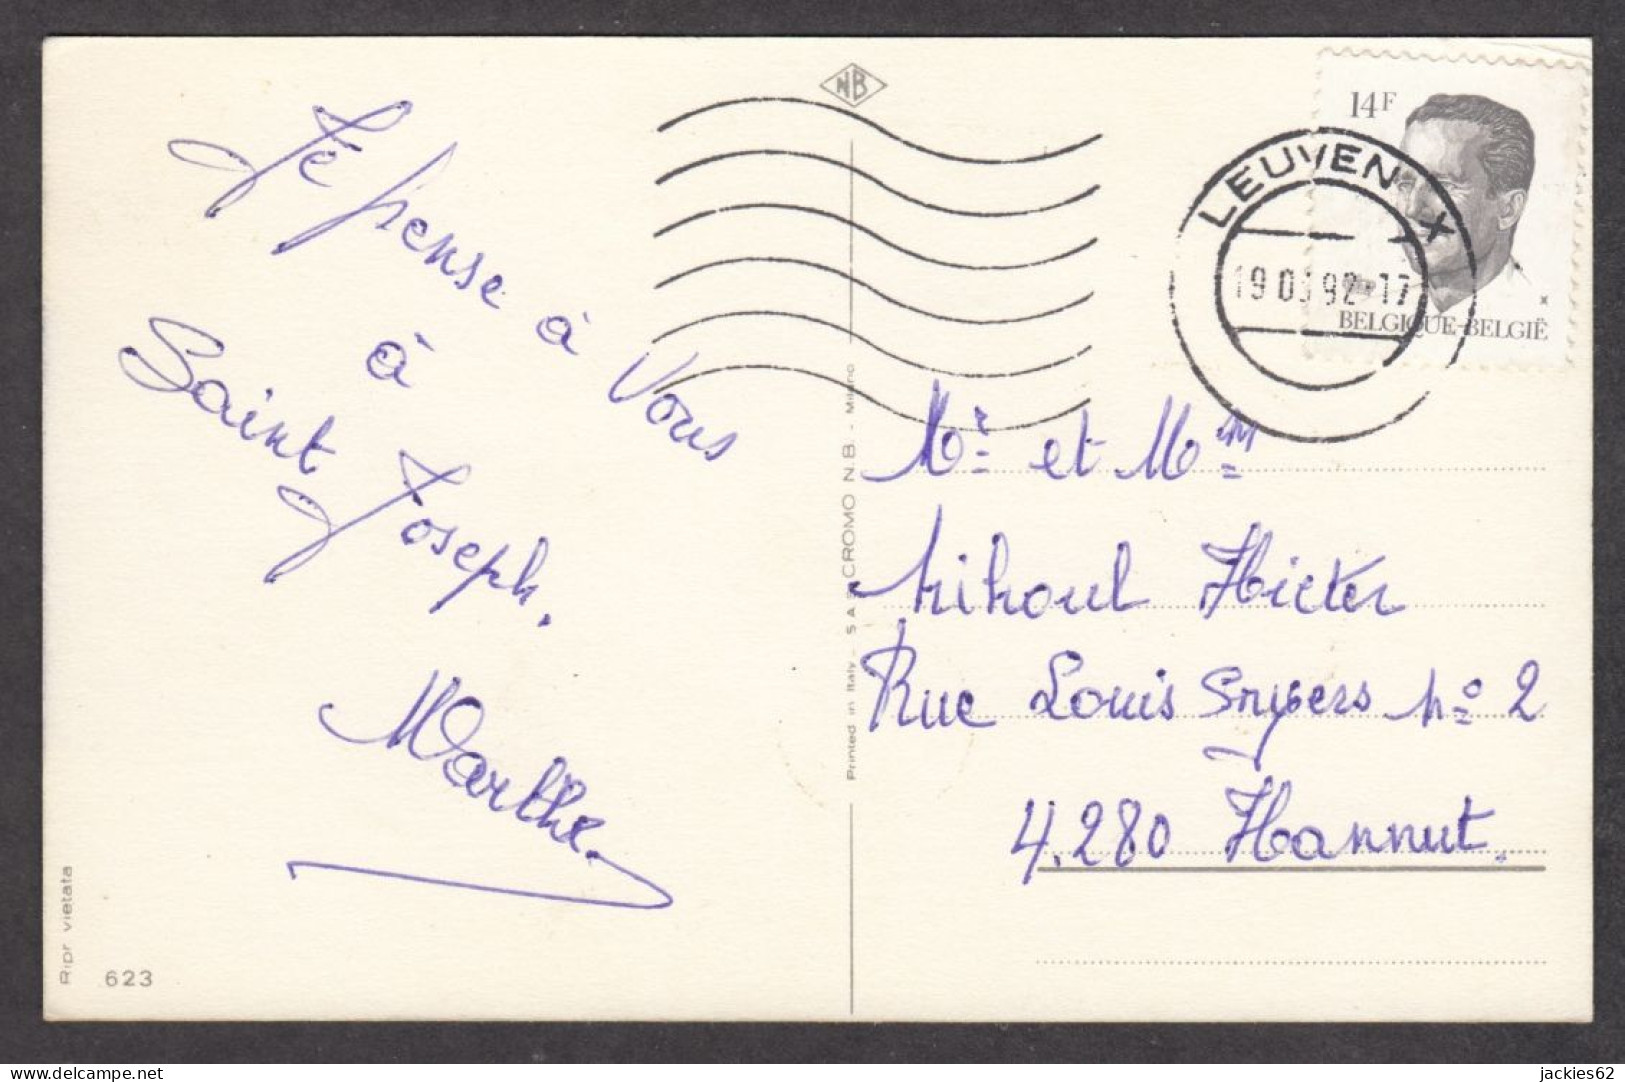 Jé pense à Vous
à
Saint Joseph.
Marthe.
Ripr vietata
623
NB
Printed in Italy - S.A.F. CROMO N.B. - Milano
14F
BELGIQUE-BELGIË
LEUVEN X
19 03 92-17
Mr et Mm
Mihoul Hicter
Rue Louis Snyers no 2
4.280 Hannut.
jackies62